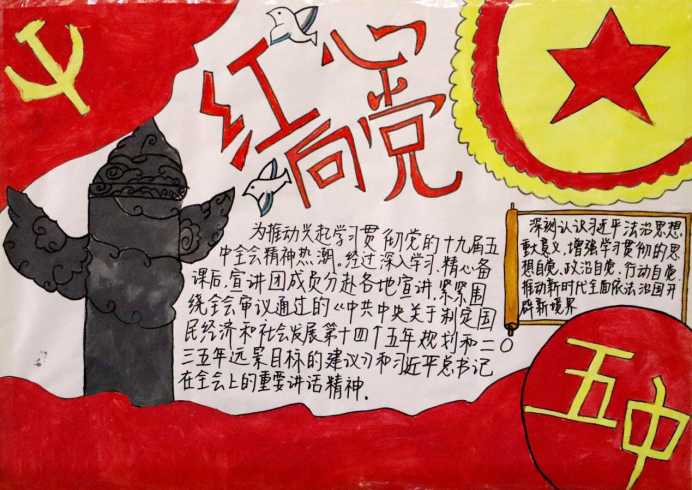 红心
向党
为推动兴起学习贯彻党的十九届五
中全会精神热潮。经过深入学习、精心备
课后,宣讲团成员分赴各地宣讲,紧紧围
绕全会审议通过的《中共中央关于制定国
民经济和社会发展第十四个五年规划和二〇
三五年远景目标的建议》和习近平总书记
在全会上的重要讲话精神.
深刻认识习近平法治思想
重大意义,增强学习贯彻的思
想自觉,政治自觉,行动自觉
推动新时代全面依法治国开
辟新境界
五中